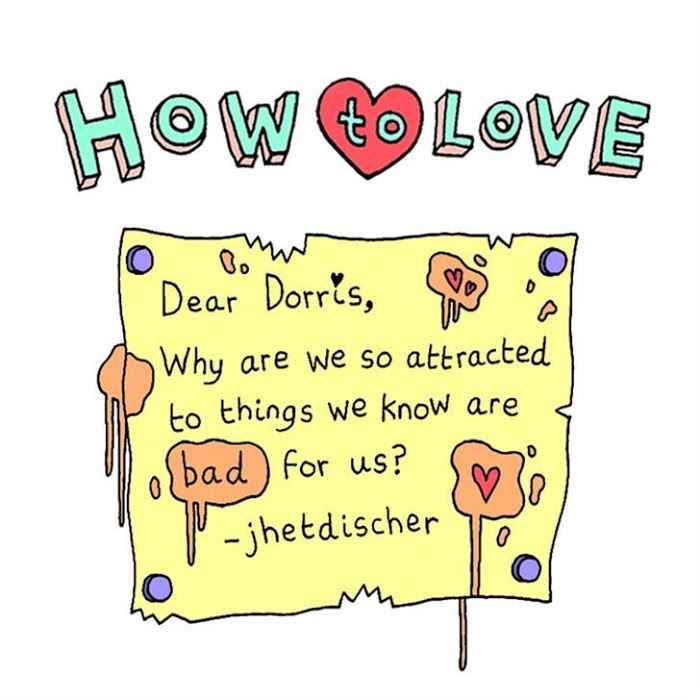 HOW to LOVE
Dear Dorris,
Why are we so attracted
to things we know are
bad for us?
-jhetdischer